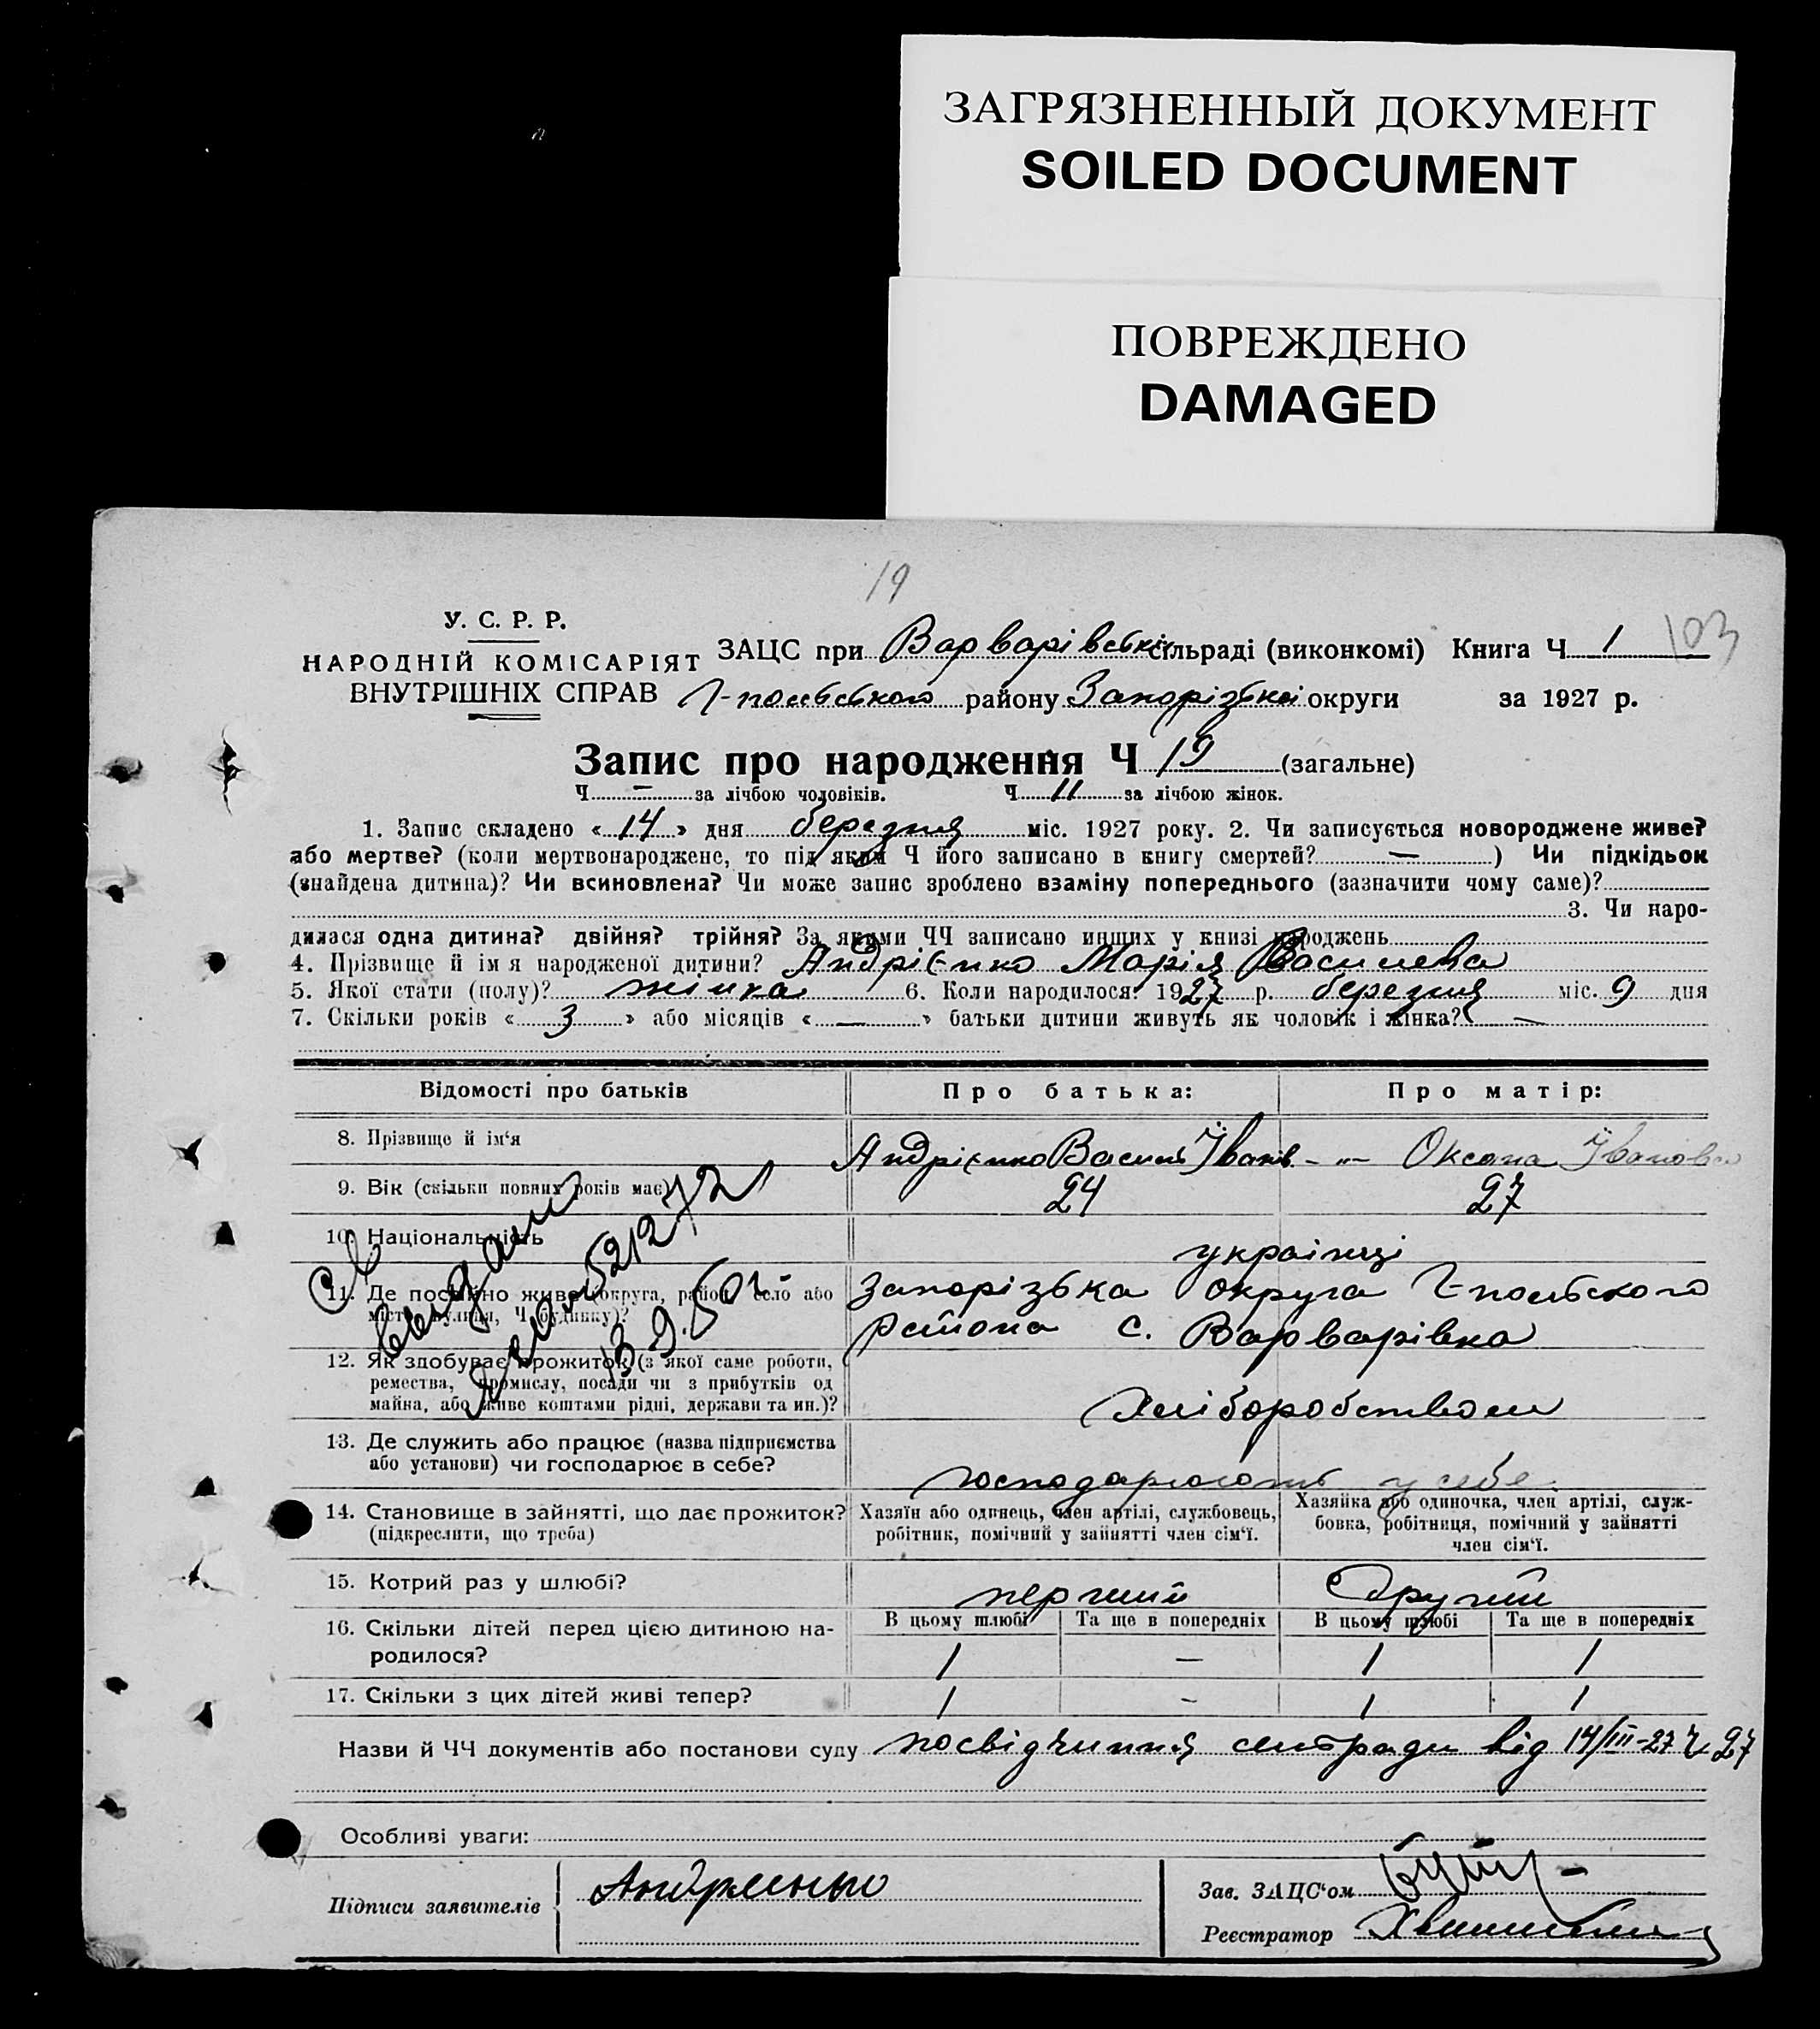 ЗАГРЯЗНЕННЫЙ ДОКУМЕНТ
SOILED DOCUMENT
ПОВРЕЖДЕНО
DAMAGED
19
103
У. С. Р. Р.
НАРОДНІЙ КОМІСАРІЯТ
ВНУТРІШНІХ СПРАВ
ЗАЦС при Варварівській сільраді (виконкомі) Книга Ч 1
Г-польського району Запорізької округи за 1927 р.
Запис про народження Ч 19 (загальне)
Ч — за лічбою чоловіків. Ч 11 за лічбою жінок.
1. Запис складено «14» дня березня міс. 1927 року. 2. Чи записується новороджене живе?
або мертве? (коли мертвонароджене, то під яким Ч його записано в книгу смертей? — ) Чи підкідьок
(знайдена дитина)? Чи всиновлена? Чи може запис зроблено взаміну попереднього (зазначити чому саме)?
3. Чи наро-
дилася одна дитина? двійня? трійня? За якими ЧЧ записано инших у книзі народжень
4. Прізвище й ім я народженої дитини? Андрієнко Марія Василева
5. Якої стати (полу)? жінка 6. Коли народилося? 1927 р. березня міс. 9 дня
7. Скільки років «3» або місяців «—» батьки дитини живуть як чоловік і жінка? —
Відомості про батьків Про батька: Про матір:
8. Прізвище й ім‘я Андрієнко Василь Іванів -"- Оксана Іванова
9. Вік (скільки повних років має) 24 27
10. Національність українці
11. Де постійно живе (округа, район, село або Запорізька округа Г-польского
місто, вулиця, Ч будинку)? района с. Варварівка
12. Як здобуває прожиток (з якої саме роботи,
ремества, промислу, посади чи з прибутків од
майна, або живе коштами рідні, держави та ин.)? Хліборобством
13. Де служить або працює (назва підприємства
або установи) чи господарює в себе? господарюють у себе
14. Становище в зайнятті, що дає прожиток? Хазяїн або одинець, член артілі, службовець, Хазяйка або одиночка, член артілі, служ-
(підкреслити, що треба) робітник, помічний у зайнятті член сім‘ї. бовка, робітниця, помічний у зайнятті
член сім‘ї.
15. Котрий раз у шлюбі? перший Другий
В цьому шлюбі Та ще в попередніх В цьому шлюбі Та ще в попередніх
16. Скільки дітей перед цією дитиною на-
родилося? 1 — 1 1
17. Скільки з цих дітей живі тепер? 1 - 1 1
Св
выдано
521272
13.9.50 г
Назви й ЧЧ документів або постанови суду посвідчення сельради від 14/III-27 Ч 27
Особливі уваги:
Підписи заявителів
Зав. ЗАЦС‘ом
Реєстратор